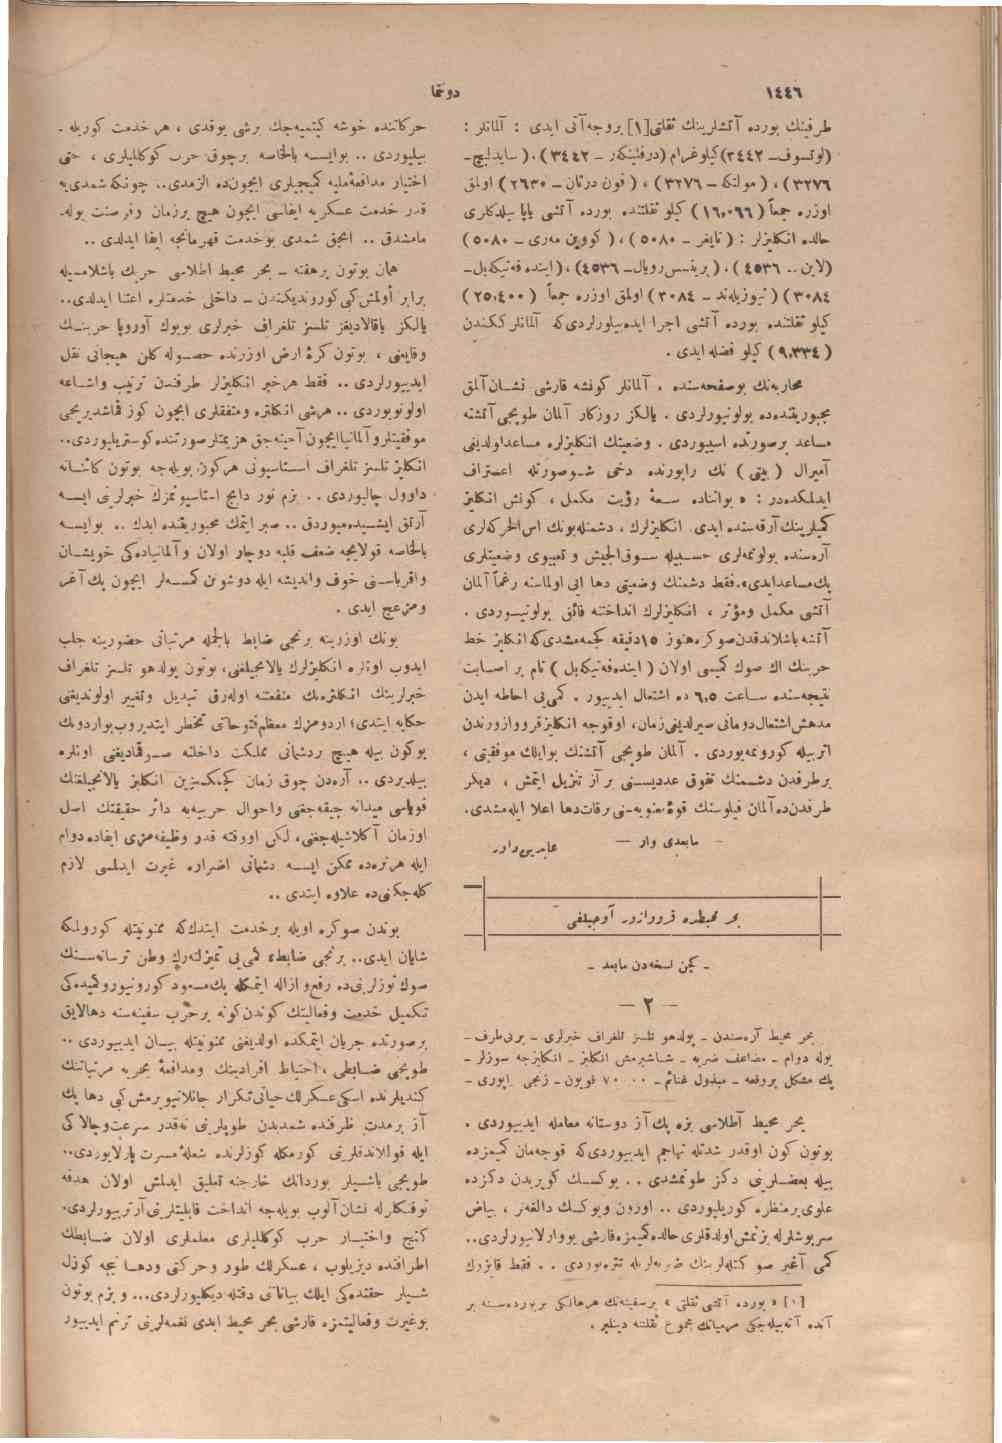 ١٤٤٦
دونما
طرفينك بورده آتشلرينك ثقلتى [١] بروجه آتى ايدى : آلمانلر :
(لوتسوف – ٣٤٤٢) كيلوغرام (درفلينكر – ٣٤٤٢) ، ( سايدليچ –
٣٢٧٦ ) ، ( مولتكه – ٣٢٧٦ ) ، ( فون درتان – ٢٦٣٠ ) اولمق
اوزره جمعاً ( ١٦,٠٦٦ ) كيلو ثقلتنده بورده آتشى ياپا بيله‌كلرى
حالده انكليزلر : ( تايغر – ٥٠٨٠ ) ، ( كووين مه‌رى – ٥٠٨٠ )
(لاين .. ٤٥٣٦ ) ، ( پرينسس رويال – ٤٥٣٦ ) ، ( اينده‌فه‌تيكه‌بل –
٣٠٨٤ ) ( نيوزيله‌ند – ٣٠٨٤ ) اولمق اوزره جمعاً ( ٢٥,٤٠٠ )
كيلو ثقلتنده بورده آتشى اجرا ايده‌بيلورلردى كه آلمانلركندن
( ٩,٣٣٤ ) كيلو فضله ايدى .
محاربه‌نك بوصفحه‌سنده ، آلمانلر كونشه قارشى نشان آلمق
مجبوريتنده بولونيورلردى . يالكز روزكار آلمان طوپجى آتشنه
مساعد برصورتده اسييوردى . وضعيتك انكليزلره مساعد اولديغى
آميرال ( بيتى ) نك راپورنده دخى شوصورتله اعتراف
ايدلمكده‌در : « بواثناده سعهٔ رؤيت مكمل ، كونش انكليز
كميلرينك آرقه‌سنده ايدى . انكليزلرك ، دشمنله بونك اس الحركه‌لرى
آره‌سنده بولونمه‌لرى حسبيله سوق الجيش و تعبيوى وضعيتلرى
پك مساعد ايدى» . فقط دشمنك وضعيتى دها ايى اولماسنه رغماً آلمان
آتشى مكمل ومؤثر ، انكليزلرك انداختنه فائق بولونيوردى .
آتشه باشلاندقدن صوكره هنوز ١٥ دقيقه كچمه‌مشدى كه انكليز خط
حربنك اك صوك كميسى اولان ( اينده‌فه‌تيكه‌بل ) تام بر اصابت
نتيجه‌سنده ساعت ٦,٥ ده اشتعال ايديبور . كمى‌يى احاطه ايدن
مدهش اشتعال دومانى صيرلديغى زمان ، اوقوجه انكليز قرووازورندن
اثر بيله كورونمه‌يوردى . آلمان طوپجى آتشنك بوايلك موفقيتى ،
برطرفدن دشمنك تفوق عدديسنى بر آز تنزيل ايتمش ، ديكر
طرفدن ده آلمان فيلوسنك قوهٔ معنويه‌سنى برقات دها اعلا ايله‌مشدى .
– مابعدى وار –
عابدين داور
بحر محيطده قرووازور آوجيلغى
– كچن نسخه‌دن مابعد –
– ٢ –
بحر محيط آره‌سندن – پولدهو تلسز تلغراف خبرلرى – بربى طرف –
يوله دوام – مضاعف ضربه – شاشيرمش انكليز – انكليزجه سوزلر –
پك مشكل بروقعه – مبذول غنائم – ٧٠٠٠ قويون – زنجى اپورى –
بحر محيط آطلاسى بزه پك آز دوستانه معامله ايديبوردى .
بوتون كون اوقدر شدتله تهاجم ايديبوردى كه قوجه‌مان كميمزده
بيله بعضلرينى دكز طوتمشدى . . يوكسك كوپريدن دكزده
علوى برمنظره كوريليوردى .. اوزون ويوكسك دالغه‌لر ، بياض
سرپوشلرله بزنمش اولدقلرى حالده كميمزه قارشى يووارلانيورلردى ..
كمى آغير صو كتله‌لرينك ضربه‌لريله تتره‌يوردى . . فقط قابزرك
[١] « بورده آتشى ثقلتى » برسفينه‌نك هرهانكى بربورده‌سنه بر
آنده آته‌بيله‌جكى مرمياتك مجموع ثقلتنه دينلير .
حركاتنده خوشه كيتميه‌جك برشى يوقدى ، هر خدمت كوريله ‐
بيليوردى .. بوايسه بالخاصه برچوق حرب كوكلليلرى ، حتى
اختيار مدافعهٔ مليه كميجيلرى ايچون ده الزمدى .. چونكه شمدى‌يه
قدر خدمت عسكريه ايفاسى ايچون هيچ برزمان وفرصت بوله‐
مامشدق .. آنجق شمدى بوخدمت قهرمانجه ايفا ايدلدى ..
همان بوتون برهفته – بحر محيط اطلاسى حربك باشلامسيله
برابر اولمش كبى كوروندیكندن – داخلى خدمتلره اعتنا ايدلدى ..
يالكز ياقالاديغز تلسز تلغراف خبرلرى بويوك آوروپا حربنك
وقايعنى ، بوتون كرهٔ ارض اوزرنده حصوله كلن هيجانى نقل
ايدييورلردى .. فقط هرخبر انكليزلر طرفندن ترتيب واشاعه
اولونويوردى .. هرشى انكلتره ومتفقلرى ايچون كوز قماشديريجى
موفقيتلر و آلمانيا ايچون آجينه‌جق هزيمتلر صورتنده كوستريليوردى ..
انكليز تلسز تلغراف استاسيونى هركون بويله‌جه بوتون كائناته
داوول چاليوردى .. بزم نور دايج استاسيونمزك خبرلرينى ايسه
آرتق ايشيده‌ميوردق .. صبر ايتمك مجبوريتنده ايدك .. بوايسه
بالخاصه قولايجه ضعف قلبه دوچار اولان و آلمانياده كى خويشان
واقرباسنى خوف وانديشه ايله دوشونن كمسه‌لر ايچون پك آغر
ومزعج ايدى .
بونك اوزرينه برنجى ضابط بالجمله مرتباتى حضورينه جلب
ايدوب اونلره انكليزلرك يالانجيلغنى ، بوتون پولدهو تلسز تلغراف
خبرلرينك انكلتره‌نك منفعتنه اوله‌رق تبديل وتغيير اولونديغنى
حكايه ايتدى ؛ اردومزك معظم فتوحاتى تخطر ايتديروب بواردونك
بوكون بيله هيچ بردشمانى مملكت داخلنه صوقماديغنى اونلره
بيلديردى .. آره‌دن چوق زمان كچمكسيزين انكليز يالانجيلغنك
فوياسى ميدانه چيقه‌جغنى واحوال حربيه‌يه دائر حقيقتك اصل
اوزمان آكلاشيله‌جغنى ، لكن اووقته قدر وظيفه‌مزى ايفاده دوام
ايله هر نره‌ده ممكن ايسه دشمانى اضراره غيرت ايدلمسى لازم
كله‌جكنى‌ده علاوه ايتدى ..
بوندن صوكره اويله برخدمت ايتدك كه ممنونيتله كورولمكه
شايان ايدى .. برنجى ضابط كمى‌يى تميزلته‌رك وطن ترسانه‌سنك
صوك توزلرينى‌ده رفع و ازاله ايتمكله پك مسعود كورونيور وكميده كى
تكميل خدمت وفعاليتك كوندن كونه برحرب سفينه‌سنه دهالايق
برصورتده جريان ايتمكده اولديغنى ممنونيتله بيان ايديبوردى ..
طوپجى ضابطى ، احتياط افرادينك ومدافعهٔ بحريه مرتباتنك
كنديلرنده اسكى عسكرلك حياتى تكرار جانلانيويرمش كبى دها پك
آز برمدت ظرفنده شمديدن طوپلرينى نه‌قدر سرعت وچالاكى
ايله قوللاندقلرينى كورمكله كوزلرنده شعلهٔ مسرت پارلايوردى ..
طوپجى باشيلر بوردانك خارجنه تعليق ايدلمش اولان هدفه
توفنكلرله نشان آلوب بويله‌جه انداخت قابليتلرينى آرتيريورلردى .
كنج واختيار حرب كوكلليلرى معلملرى اولان ضابطك
اطرافنده ديزيلوب ، عسكرلك طور وحركتى ودها نيجه كوزل
شيلر حقنده كى ايلك بياناتى دقتله ديكليورلردى ... و بزم بوتون
بوغيرت وفعاليتمزه قارشى بحر محيط ابدى نغمه‌لرينى ترنم ايديبور